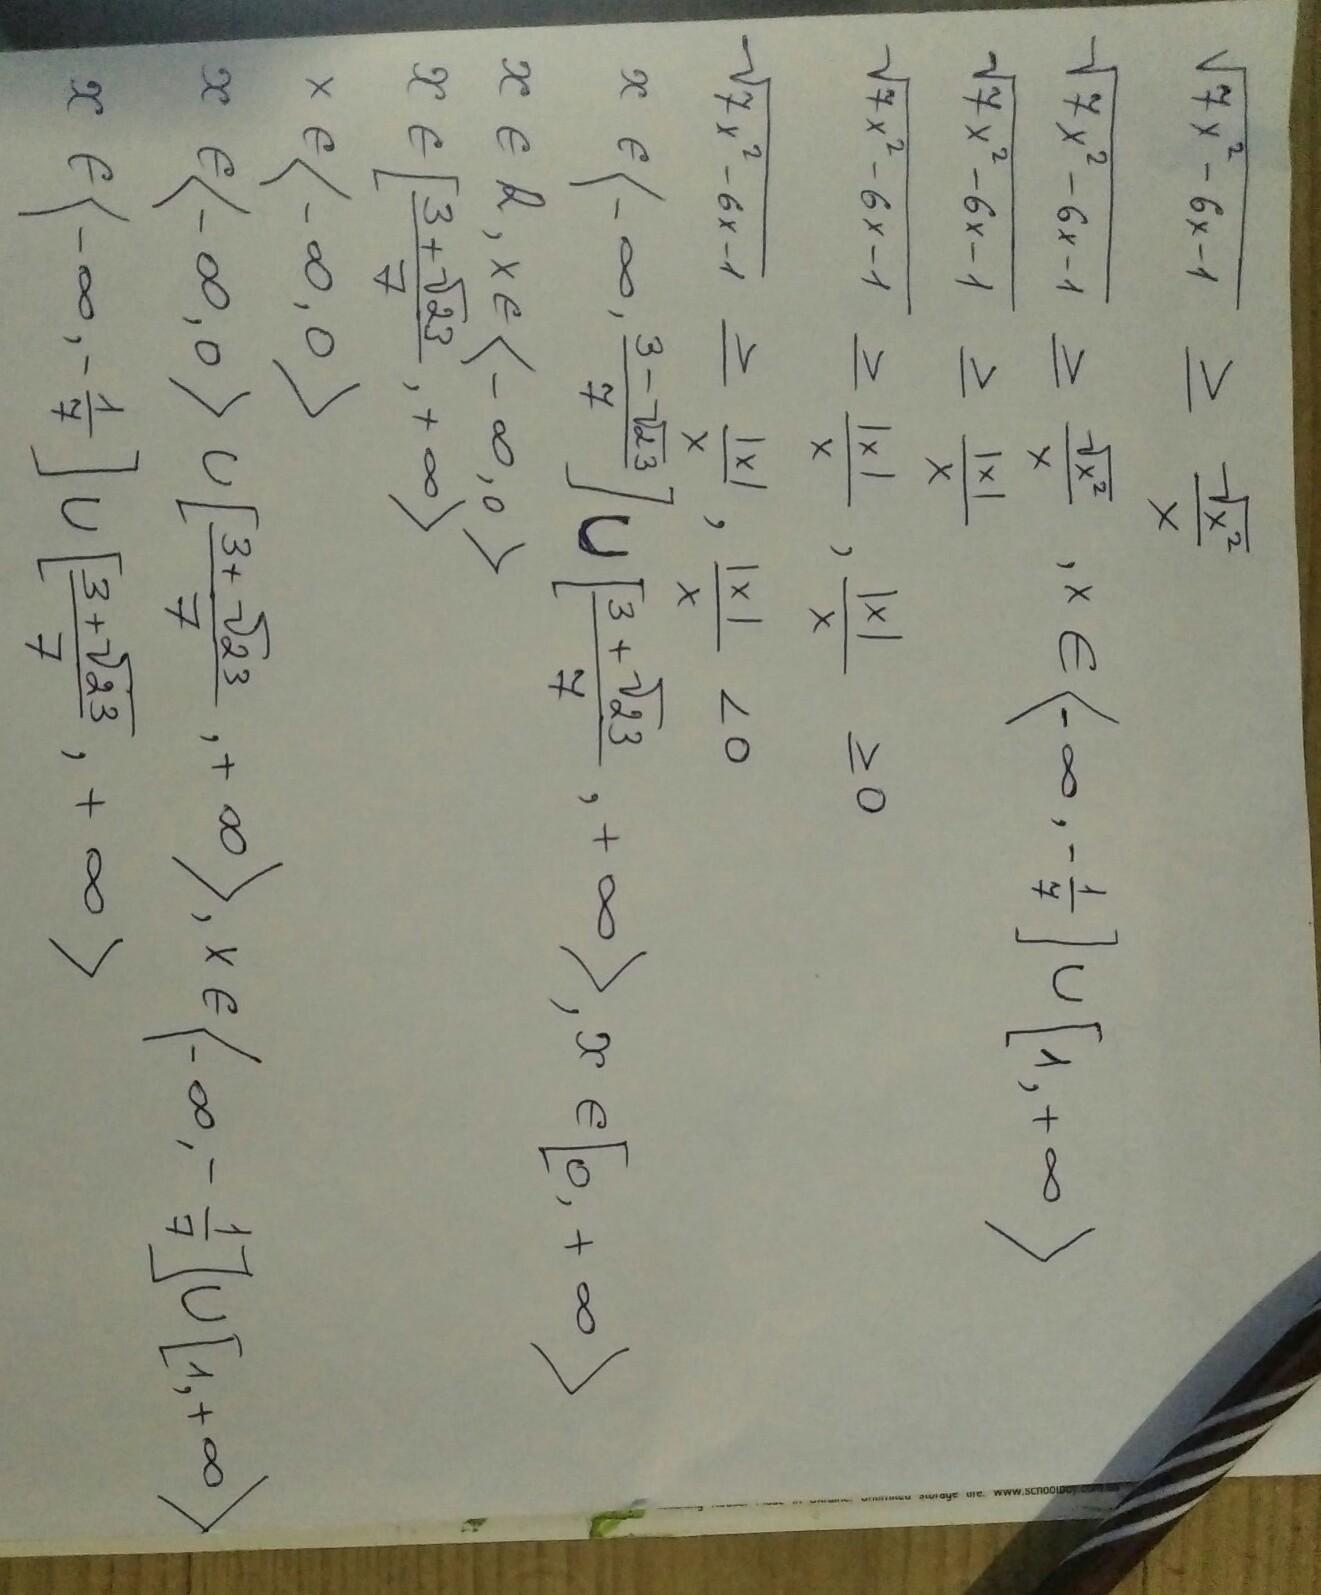 √(7x²-6x-1) ≥ √(x²)/x
√(7x²-6x-1) ≥ √(x²)/x , x ∈ ⟨-∞, -1/7] ∪ [1, +∞⟩
√(7x²-6x-1) ≥ |x|/x
√(7x²-6x-1) ≥ |x|/x , |x|/x ≥ 0
√(7x²-6x-1) ≥ |x|/x , |x|/x < 0
x ∈ ⟨-∞, (3-√23)/7] ∪ [(3+√23)/7, +∞⟩, x ∈ [0, +∞⟩
x ∈ R, x ∈ ⟨-∞, 0⟩
x ∈ [(3+√23)/7, +∞⟩
x ∈ ⟨-∞, 0⟩
x ∈ ⟨-∞, 0⟩ ∪ [(3+√23)/7, +∞⟩, x ∈ ⟨-∞, -1/7] ∪ [1, +∞⟩
x ∈ ⟨-∞, -1/7] ∪ [(3+√23)/7, +∞⟩
Unlimited storage life. www.schoolboy.com